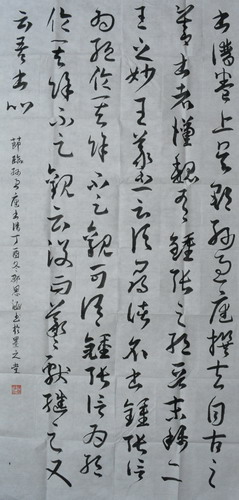 書譜卷上吳郡孫過庭撰夫自古之
善書者漢魏有鍾張之絕晉末稱二
王之妙王羲之云頃尋諸名書鍾張信
為絕倫其餘不足觀可謂鍾張信為絕
倫其餘不足觀云沒而羲獻繼之又
云吾書比
節臨孫過庭書譜丁酉冬